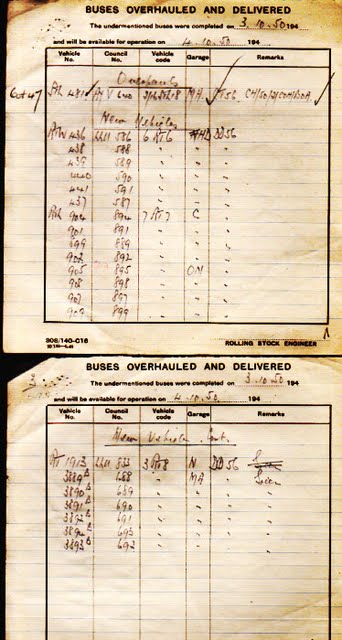 BUSES OVERHAULED AND DELIVERED
The undermentioned buses were completed on 3.10.50 194
and will be available for operation on 4.10.50 194
Vehicle No. Council No. Vehicle code Garage Remarks
Overhauls
481 640 MA
New Vehicles
436 586 6 RT6 56
438 588 " " "
439 589 " " "
440 590 " " "
441 591 " " "
437 587 " " "
904 894 7 RT7 C "
901 891 " " "
899 889 " " "
902 892 " " "
905 895 " ON "
908 898 " " "
907 897 " " "
909 899 " " "
308/140-C16
ROLLING STOCK ENGINEER
BUSES OVERHAULED AND DELIVERED
The undermentioned buses were completed on 3.10.50 194
and will be available for operation on 4.10.50 194
Vehicle No. Council No. Vehicle code Garage Remarks
New Vehicles Cont.
RT 1913 833 3 RT8 N 56
3889 688 " MA "
3890 689 " " "
3891 690 " " "
3892 691 " " "
3894 693 " " "
3893 692 " " "